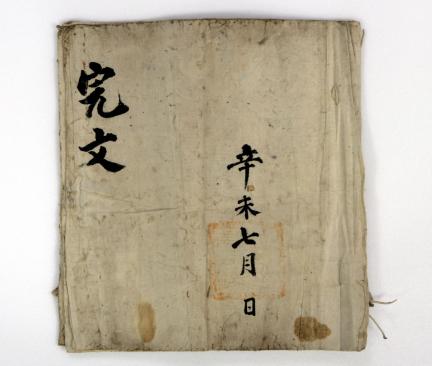 完文
辛未七月 日